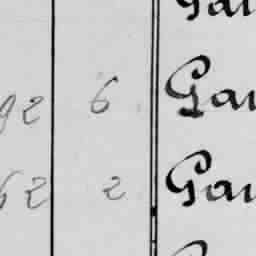 92 6 Gau
62 2 Gau